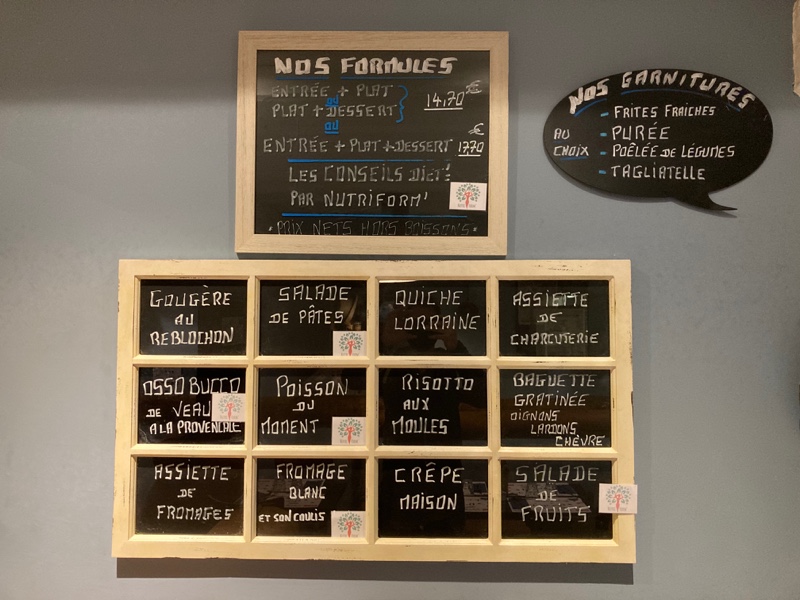 NOS FORMULES
ENTRÉE + PLAT
ou
PLAT + DESSERT
14,70 €
ou
ENTRÉE + PLAT + DESSERT 17,70 €
LES CONSEILS DIET'
PAR NUTRIFORM'
• PRIX NETS HORS BOISSONS •
NOS GARNITURES
AU CHOIX
- FRITES FRAICHES
- PURÉE
- POÊLÉE DE LÉGUMES
- TAGLIATELLE
GOUGÈRE
AU
REBLOCHON
SALADE
DE PÂTES
QUICHE
LORRAINE
ASSIETTE
DE
CHARCUTERIE
OSSO BUCCO
DE VEAU
A LA PROVENCALE
POISSON
DU
MOMENT
RISOTTO
AUX
MOULES
BAGUETTE
GRATINÉE
OIGNONS
LARDONS
CHÈVRE
ASSIETTE
DE
FROMAGES
FROMAGE
BLANC
ET SON COULIS
CRÊPE
MAISON
SALADE
DE
FRUITS